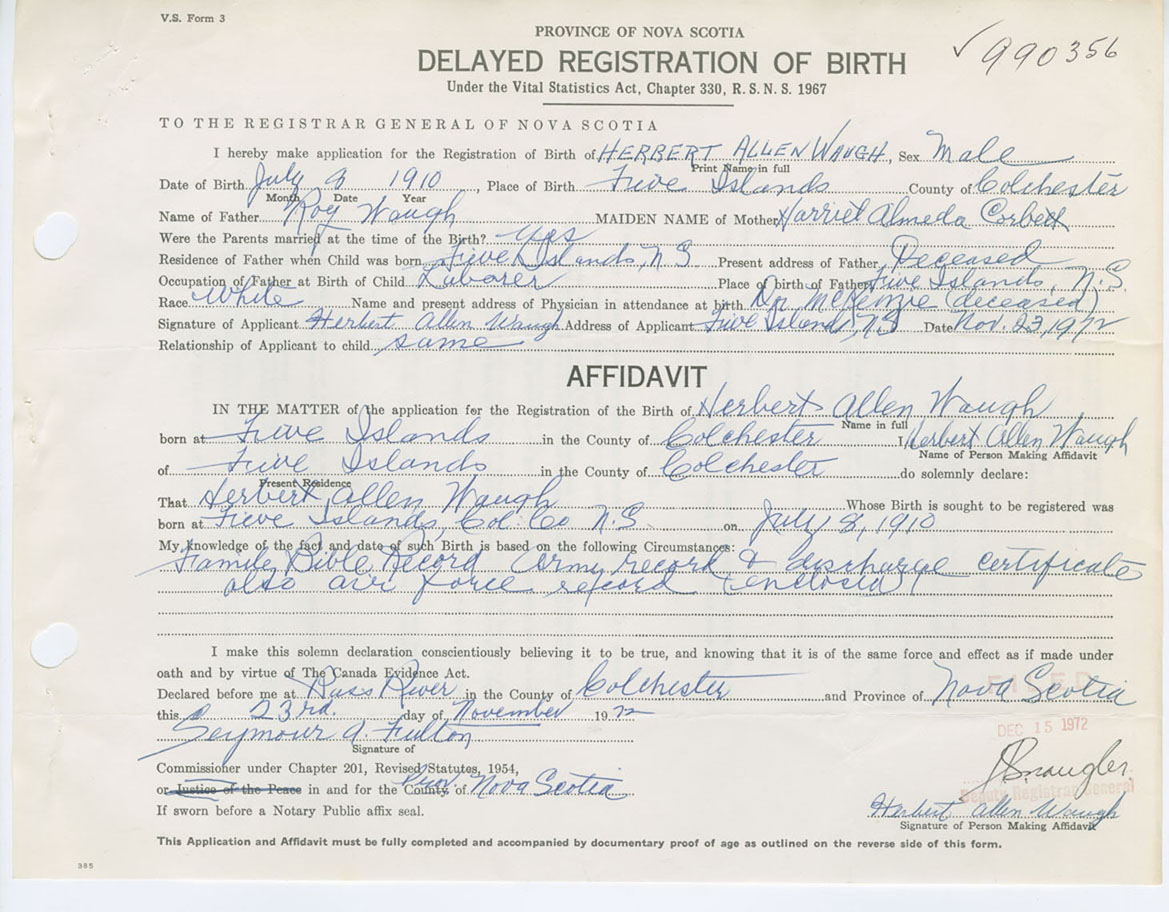 V.S. Form 3
PROVINCE OF NOVA SCOTIA
✓ 990356
DELAYED REGISTRATION OF BIRTH
Under the Vital Statistics Act, Chapter 330, R. S. N. S. 1967
TO THE REGISTRAR GENERAL OF NOVA SCOTIA
I hereby make application for the Registration of Birth of HERBERT ALLEN WAUGH, Sex Male
Print Name in full
Date of Birth July 8 1910, Place of Birth Five Islands County of Colchester
Month Date Year
Name of Father Roy Waugh MAIDEN NAME of Mother Harriet Almeda Corbett
Were the Parents married at the time of the Birth? yes
Residence of Father when Child was born Five Islands, N S Present address of Father Deceased
Occupation of Father at Birth of Child Laborer Place of birth of Father Five Islands, N.S.
Race White Name and present address of Physician in attendance at birth Dr. McKenzie (deceased)
Signature of Applicant Herbert Allen Waugh Address of Applicant Five Islands, N.S Date Nov. 23, 1972
Relationship of Applicant to child same
AFFIDAVIT
IN THE MATTER of the application for the Registration of the Birth of Herbert Allen Waugh,
Name in full
born at Five Islands in the County of Colchester I, Herbert Allen Waugh
Name of Person Making Affidavit
of Five Islands in the County of Colchester do solemnly declare:
Present Residence
That Herbert Allen Waugh Whose Birth is sought to be registered was
born at Five Islands, Col. Co N.S. on July 8, 1910
My knowledge of the fact and date of such Birth is based on the following Circumstances:
Family Bible Record Army record & discharge certificate
also air force record (enclosed)
I make this solemn declaration conscientiously believing it to be true, and knowing that it is of the same force and effect as if made under
oath and by virtue of The Canada Evidence Act.
Declared before me at Bass River in the County of Colchester and Province of Nova Scotia
FILED
this 23rd. day of November 1972
DEC 15 1972
Seymour A. Fulton
Signature of
Commissioner under Chapter 201, Revised Statutes, 1954,
or Justice of the Peace in and for the County of Prov Nova Scotia
Deputy Registrar General
If sworn before a Notary Public affix seal.
Herbert Allen Waugh
Signature of Person Making Affidavit
This Application and Affidavit must be fully completed and accompanied by documentary proof of age as outlined on the reverse side of this form.
385